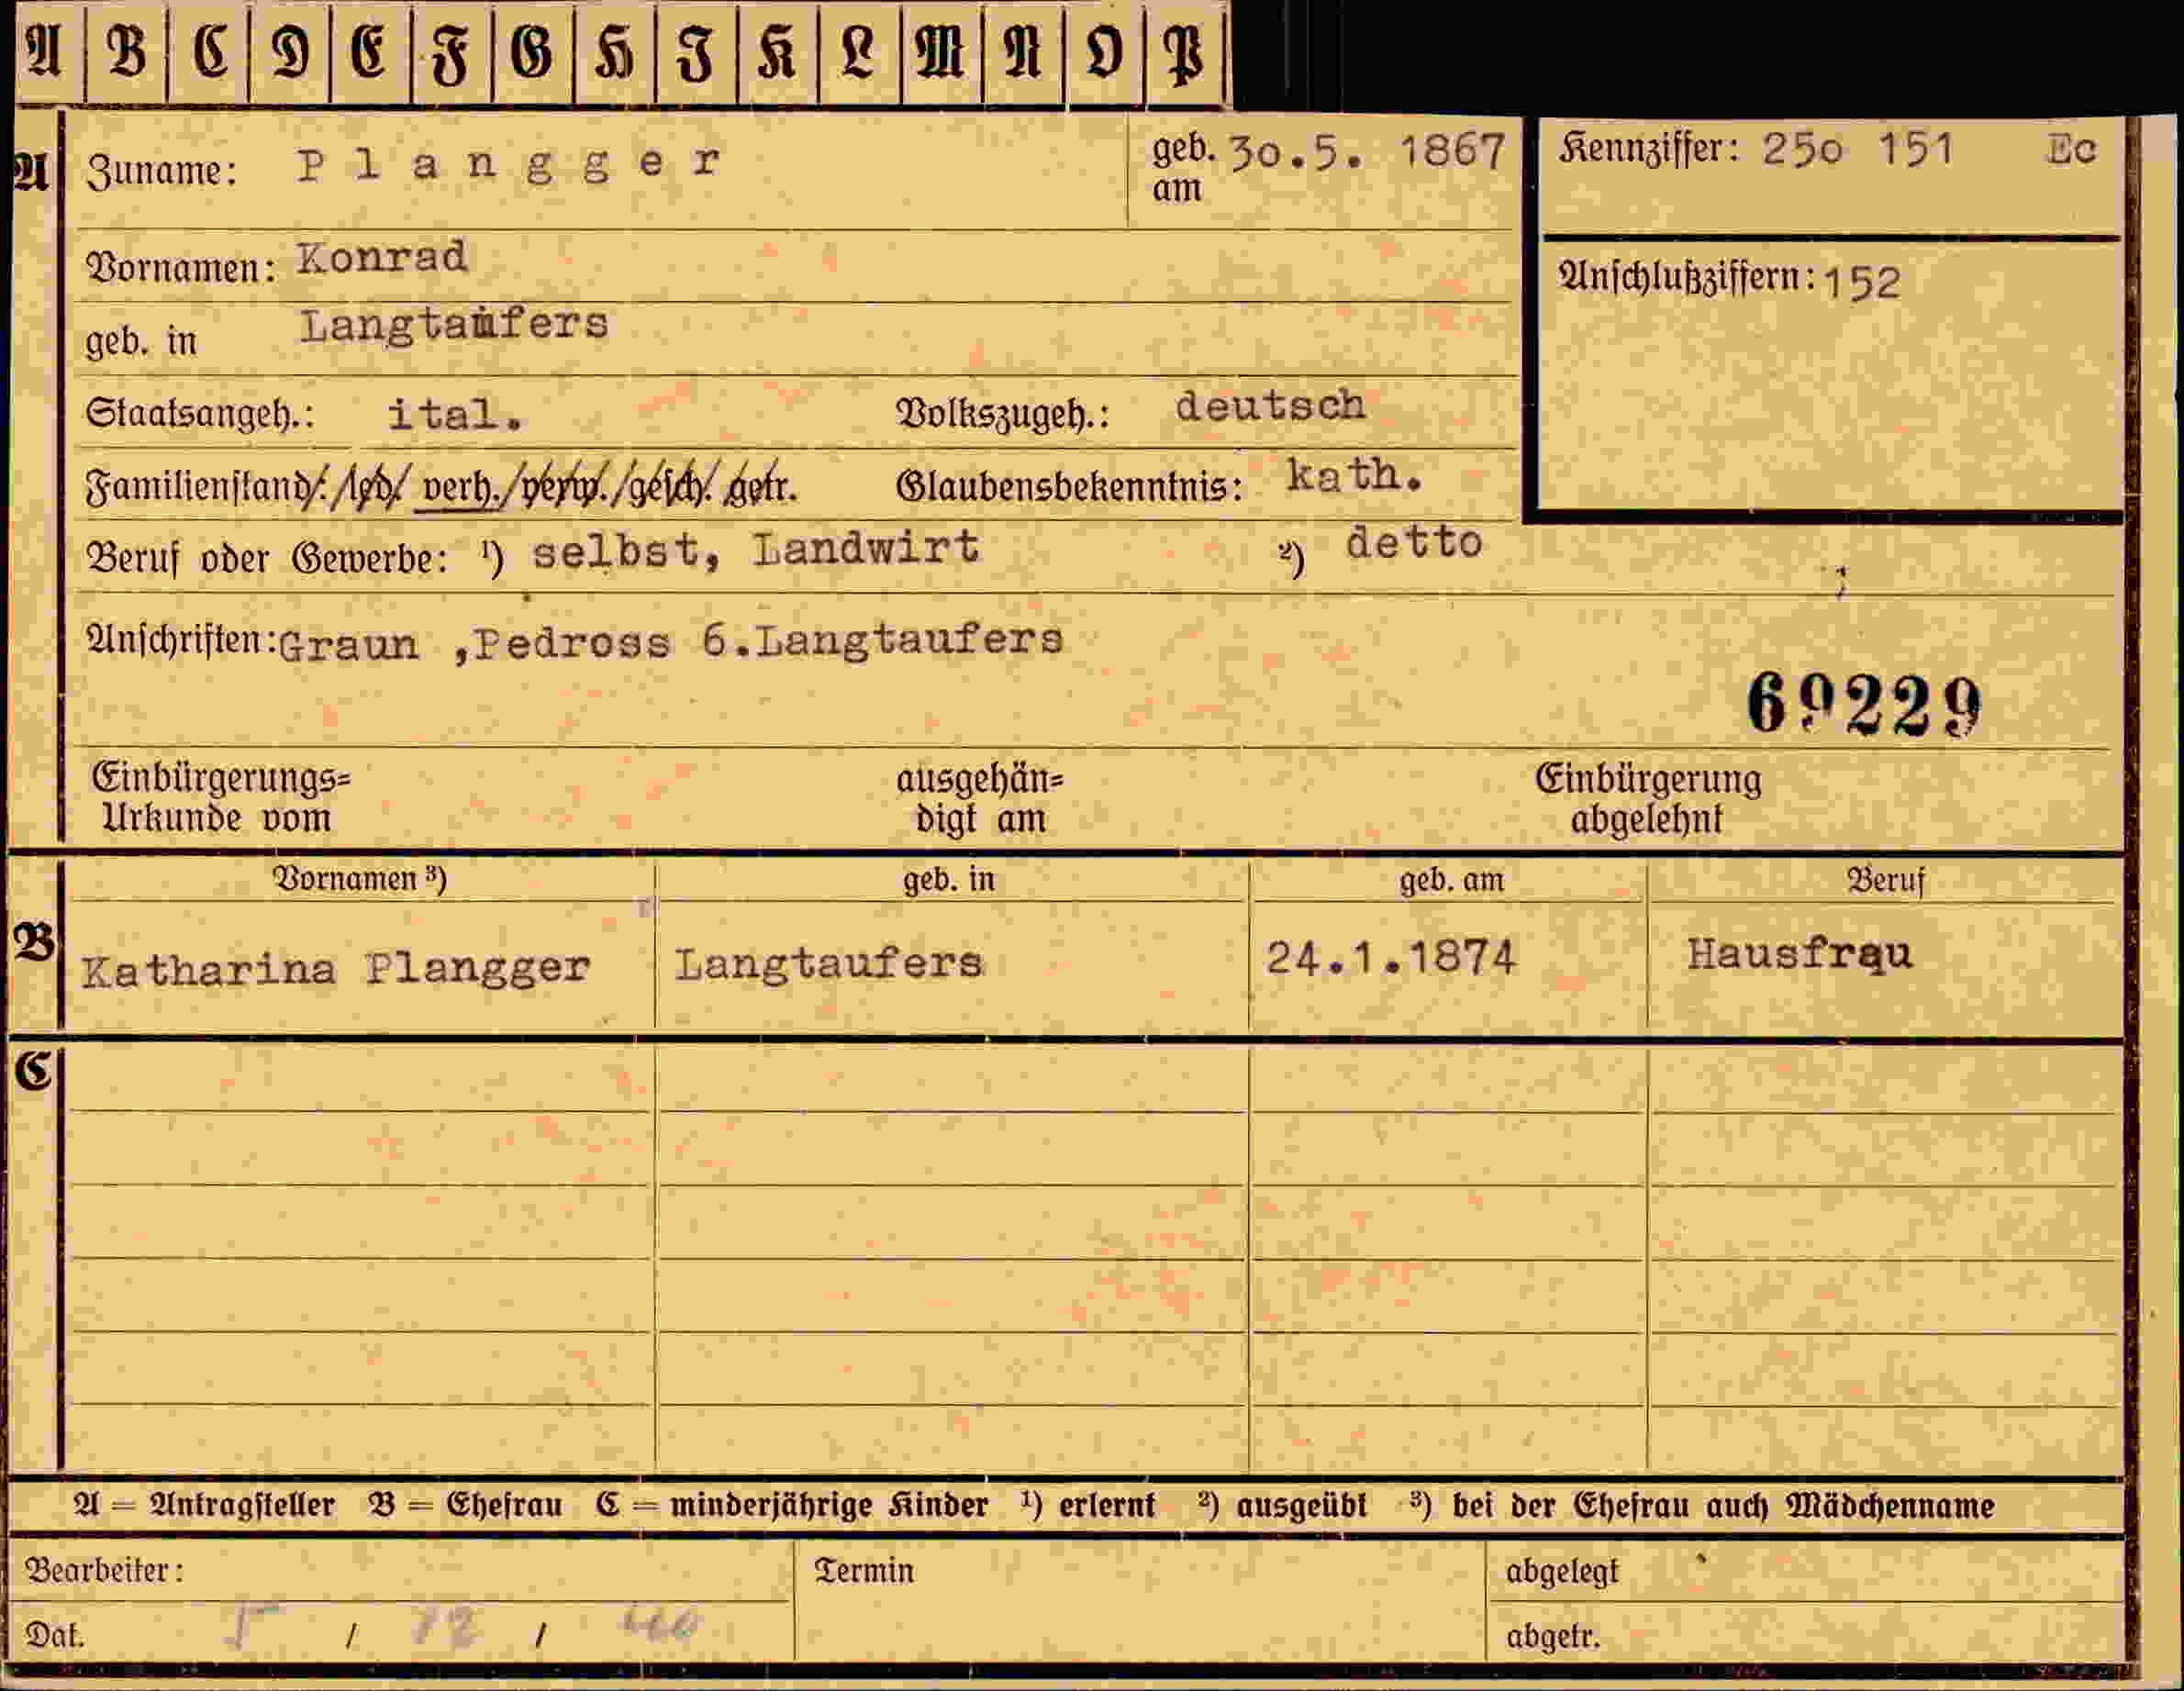 A B C D E F G H I K L M N O P
A Zuname: Plangger geb. am 30.5. 1867 Kennziffer: 25o 151 Ec
Vornamen: Konrad
Anschlußziffern: 152
geb. in Langtaufers
Staatsangeh.: ital. Volkszugeh.: deutsch
Familienstand: led. verh./verw./gesch. getr. Glaubensbekenntnis: kath.
Beruf oder Gewerbe: ¹) selbst, Landwirt ²) detto
Anschriften: Graun ,Pedross 6.Langtaufers
69229
Einbürgerungs= ausgehän= Einbürgerung
Urkunde vom digt am abgelehnt
Vornamen ³) geb. in geb. am Beruf
B Katharina Plangger Langtaufers 24.1.1874 Hausfrau
C
A = Antragsteller B = Ehefrau C = minderjährige Kinder ¹) erlernt ²) ausgeübt ³) bei der Ehefrau auch Mädchenname
Bearbeiter: Termin abgelegt
Dat. 5 / 12 / 40 abgetr.